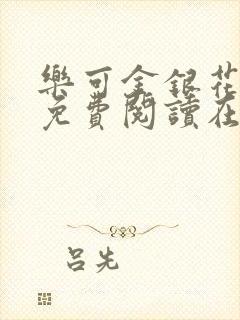 樂可金銀花
免費閱讀在
呂先